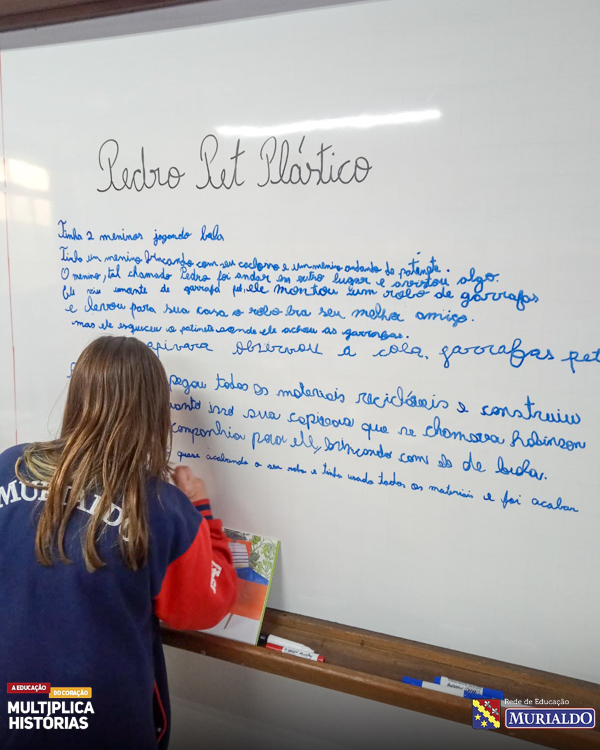 Pedro Pet Plástico
Tinha 2 meninos jogando bola
Tinha um menino brincando com seu cachorro e um menino andando de patinete.
O menino, tal chamado Pedro foi andar em outro lugar e avistou algo.
Ele viu amante de garrafa pet, ele montou um robo de garrafas
e levou para sua casa o robo era seu melhor amigo.
mas ele esqueceu o patinete onde ele achou as garrafas.
apivara observou a cola, garrafas pet
pegou todos os materiais recicláveis e construiu
quanto isso sua capivara que se chamava Robinson
companhia para ele, brincando com ele de bola.
quase acabando o seu robo e tinha usado todos os materiais e foi acabar
MURIALDO
A EDUCAÇÃO DO CORAÇÃO
MULTIPLICA
HISTÓRIAS
Rede de Educação
MURIALDO